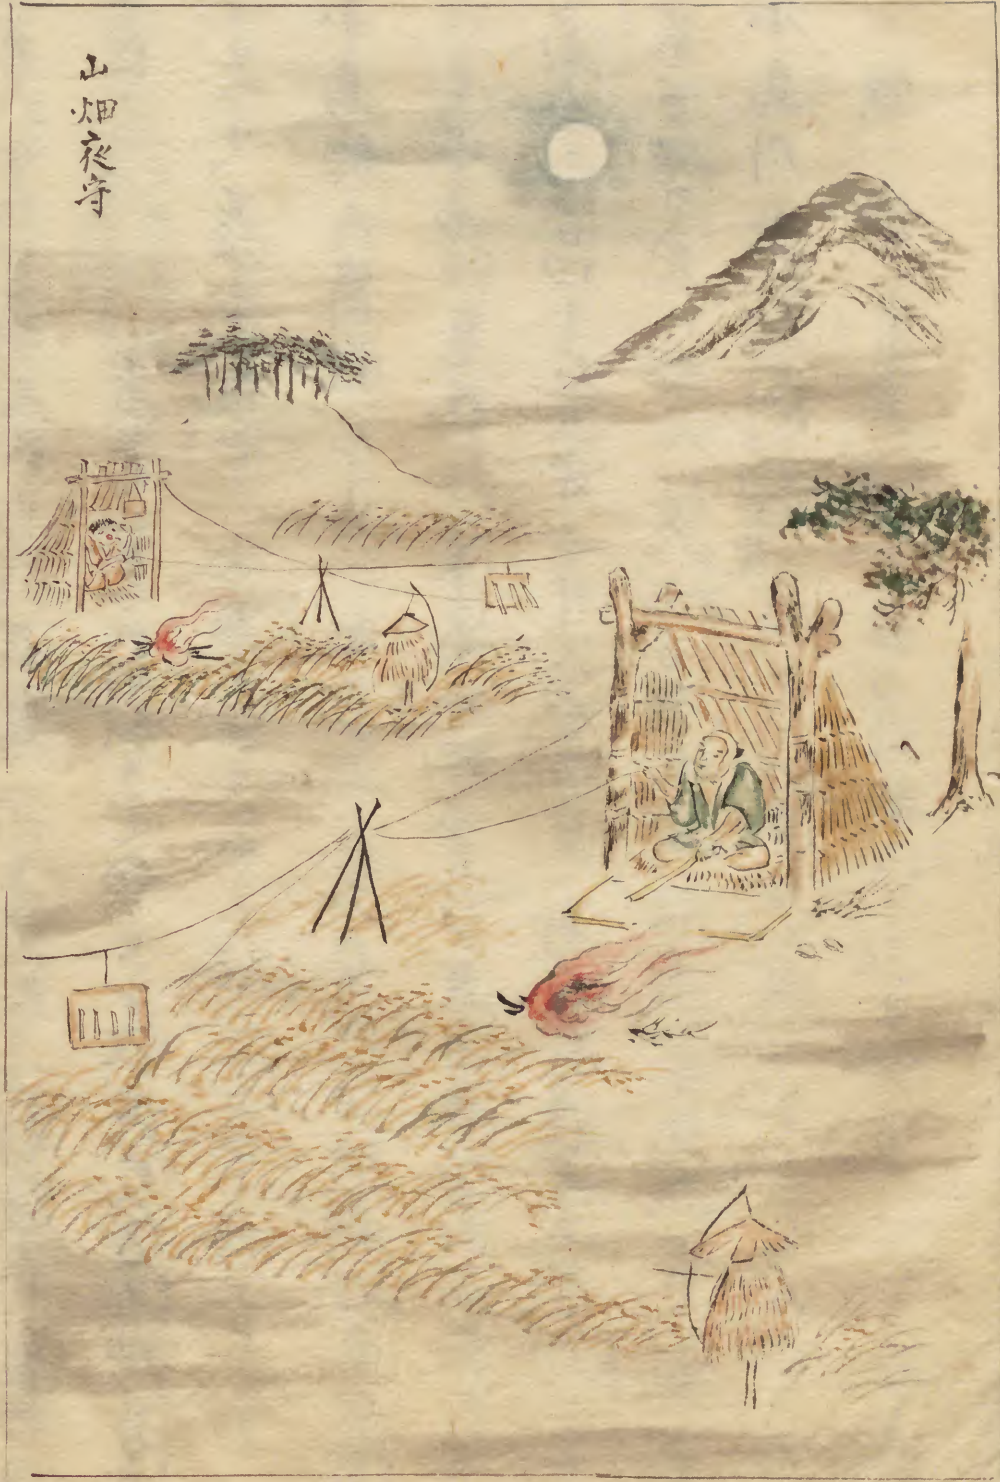 山畑夜守